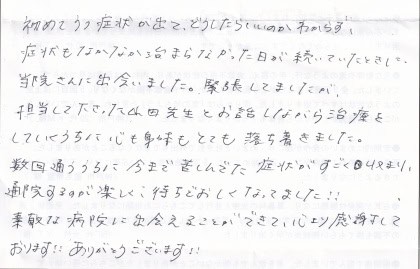 初めてうつ症状が出て、どうしたらいいのかわからず、
症状もなかなか治まらなかった日が続いていたときに、
当院さんに出会いました。緊張してましたが、
担当して下さった山田先生とお話しながら治療を
していくうちに心も身体もとても落ち着きました。
数回通ううちに今まで苦しんでた症状がすごく収まり、
通院するのが楽しく、待ちどおしくなってました!!
素敵な病院に出会えることができて、心より感謝して
おります!! ありがとうございます!!